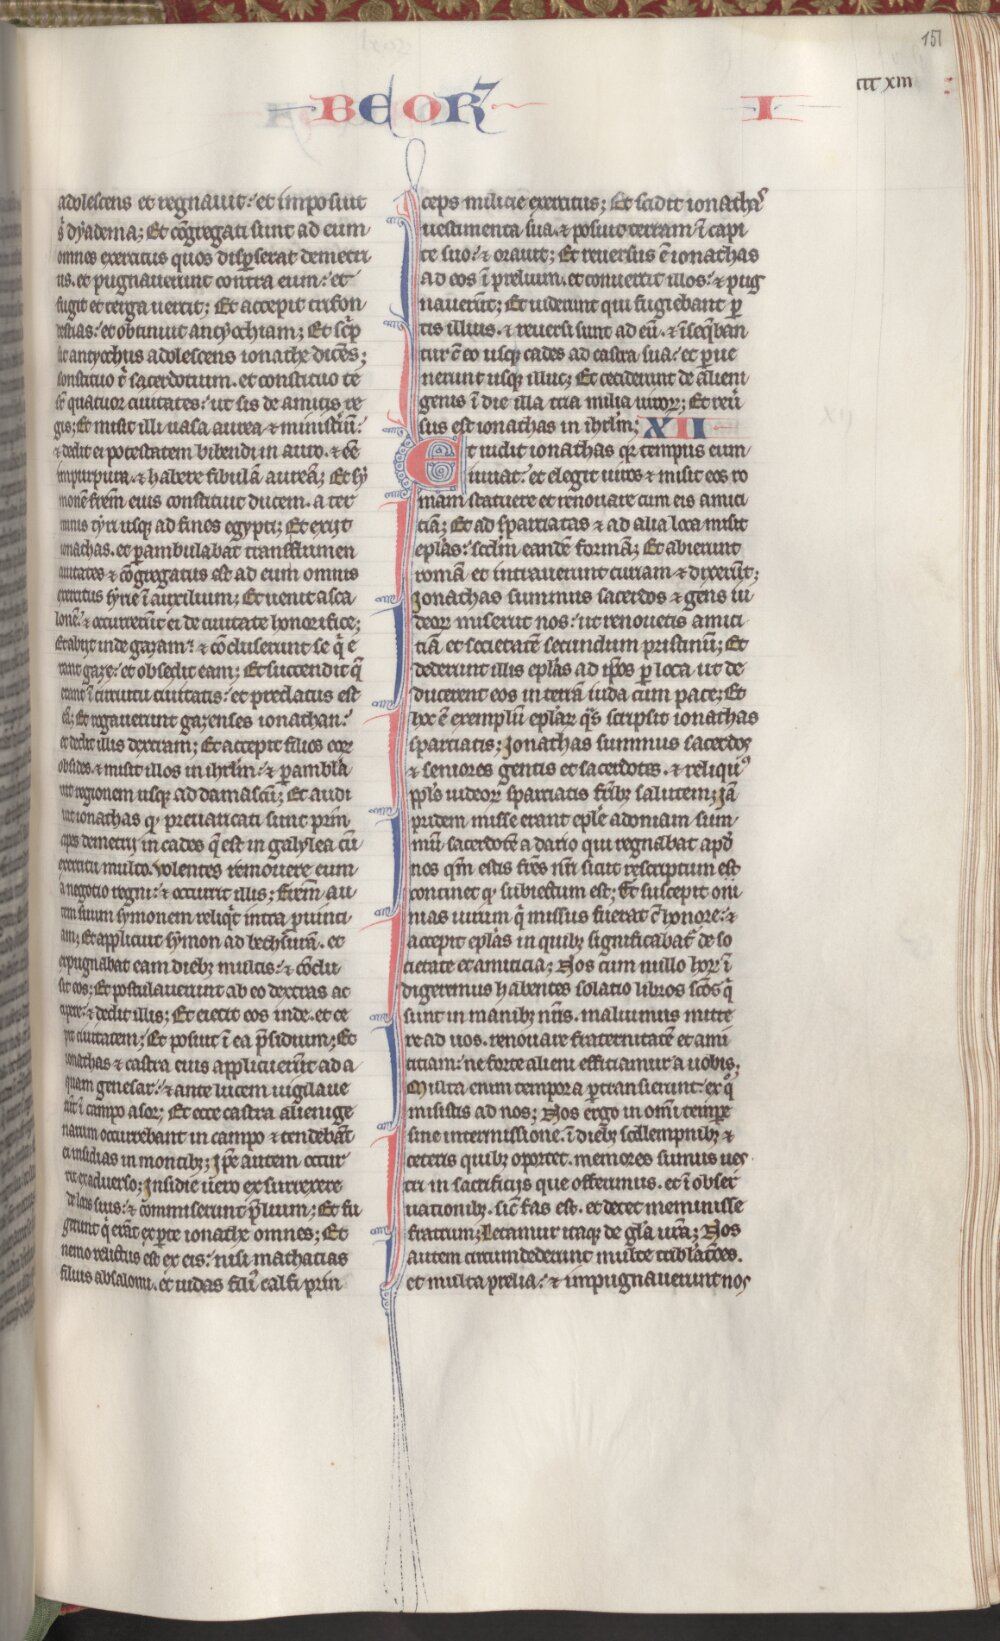 151
ccc xiii
BEOR I
adolescens et regnauit: et imposuit
s̉ dyadema; Et cōgregati sunt ad eum
omnes exercitus quos disꝑserat demetri
us. et pugnauerunt contra eum: et
fugit et terga uertit; Et accepit trifon
bestias: et obtinuit antyochiam; Et sc̉p
sit antyochus adolescens ionathe dicēs;
constituo t̉ sacerdotium. et constituo te
sr̄ quatuor ciuitates: ut sis de amicis re
gis; Et misit illi uasa aurea ⁊ ministm̄:
⁊ dedit ei potestatem bibendi in auro. ⁊ eē
in purpura. ⁊ habere fibulā aureā; Et sy
monē frēm eius constituit ducem. a ter
minis tyri usqꝫ ad fines egypti; Et exijt
ionathas. et ꝑambulabat transflumen
ciuitates ⁊ cōgregatus est ad eum omnis
exercitus syrie ī auxilium; Et uenit asca
lonē: ⁊ occurrerūt ei de ciuitate honorifice;
Et abijt inde gazam: ⁊ cōcluserunt se q̉ e
rant gaze: et obsedit eam; Et succendit q̄
erant ī circuitu ciuitatis: et predatus est
eā; Et rogauerunt gazenses ionathan:
et dedit illis dextram; Et accepit filios eoꝝ
obsides. ⁊ misit illos in ihrlm̄: ⁊ ꝑambla
uit regionem usqꝫ ad damascū; Et audi
uit ionathas qꝫ preuaricati sunt prin
cipes demetrij in cades q̄ est in galylea cū
exercitu multo. uolentes remouere eum
a negotio regni: ⁊ occurit illis; Frēm au
tem suum symonem reliqt̉ intra ꝓuinci
am; Et applicuit symon ad bethsurā. et
expugnabat eam diebꝫ multis: ⁊ cōclu
sit eos; Et postulauerunt ab eo dextras ac
cipere: ⁊ dedit illis; Et eiecit eos inde. et ce
pit ciuitatem; Et posuit ī ea p̄sidium; Et
ionathas ⁊ castra eius applicuerūt ad a
quam genesar: ⁊ ante lucem uigilaue
runt ī campo asor; Et ecce castra alienige
narum occurrebant in campo ⁊ tendebāt
ei insidias in montibꝫ; Ip̄e autem occur
rit ex aduerso; Insidie uero exsurrexere
de locis suis: ⁊ cōmiserunt p̄lium; Et fu
gerunt q̉ erāt ex ꝑte ionathe omnes; Et
nemo relictus est ex eis: nisi mathatias
filius absalomi. et iudas fili̓ calfi prin
ceps milicie exercitus; Et scidit ionathas
uestimenta sua. ⁊ posuit terram ī capi
te suo: ⁊ orauit; Et reuersus ē ionathas
ad eos ī prelium. et conuertit illos: ⁊ pug
nauerūt; Et uiderunt qui fugiebant ꝑ
tis illius. ⁊ reuersi sunt ad eū. ⁊ īseq̄ban
tur c̄ eo usqꝫ cades ad castra sua: et ꝑue
nerunt usqꝫ illuc; Et ceciderunt de alieni
genis ī die illa tria milia uiroꝝ; Et reu̓
sus est ionathas in ihrlm̄; XII
Et uidit ionathas qꝛ tempus eum
iuuat: et elegit uiros ⁊ misit eos ro
mam statuere et renouare cum eis amici
ciā; Et ad sparciatas ⁊ ad alia loca misit
epl̄as: scd̄m eandē formā; Et abierunt
romā et intrauerunt curiam ⁊ dixerūt;
Ionathas summus sacerdos ⁊ gens iu
deoꝝ miserut nos: ut renouetis amici
tiā et societatē secundum pristinū; Et
dederunt illis epl̄as ad ip̄os ꝑ loca ut de
ducerent eos in terrā iuda cum pace; Et
hoc ē exemplū epl̄aꝝ q̄s scripsit ionathas
sparciatis; Ionathas summus sacerdoꝫ
⁊ seniores gentis et sacerdotes. ⁊ reliquꝰ
ppl̄s iudeoꝝ sparciatis fr̄ibꝫ salutem; Iā
pridem misse erant epl̄e ad oniam sum
mū sacerdotē a dario qui regnabat apd̓
nos qm̄ estis fr̄es nr̄i sicut rescriptum est
continet qꝫ subiectum est; Et suscepit oni
nias uirum q̉ missus fuerat c̄ honore: ⁊
accepit epl̄as in quibꝫ significabat̓ de so
cietate et amicicia; Nos cum nullo hoꝝ ī
digeremus habentes solatio libros sc̄os q̉
sunt in manibꝫ nr̄is. maluimus mitte
re ad uos. renouare fraternitatē et ami
citiam: ne forte alieni efficiamur a uobis;
Multa enim tempora ꝑtransierunt: ex q̊
misistis ad nos; Nos ergo in omī tempe
sine intermissione. ī diebꝫ sollempnibꝫ ⁊
ceteris quibꝫ oportet. memores sumus ues
tri in sacrificijs que offerimus. et ī obser
uationibꝫ. sic̄ fas est. et decet meminisse
fratrum; Letamur itaqꝫ de gl̄a ur̄a; Nos
autem circumdederunt multe tribl̄atōes.
et multa prelia: ⁊ impugnauerunt nos